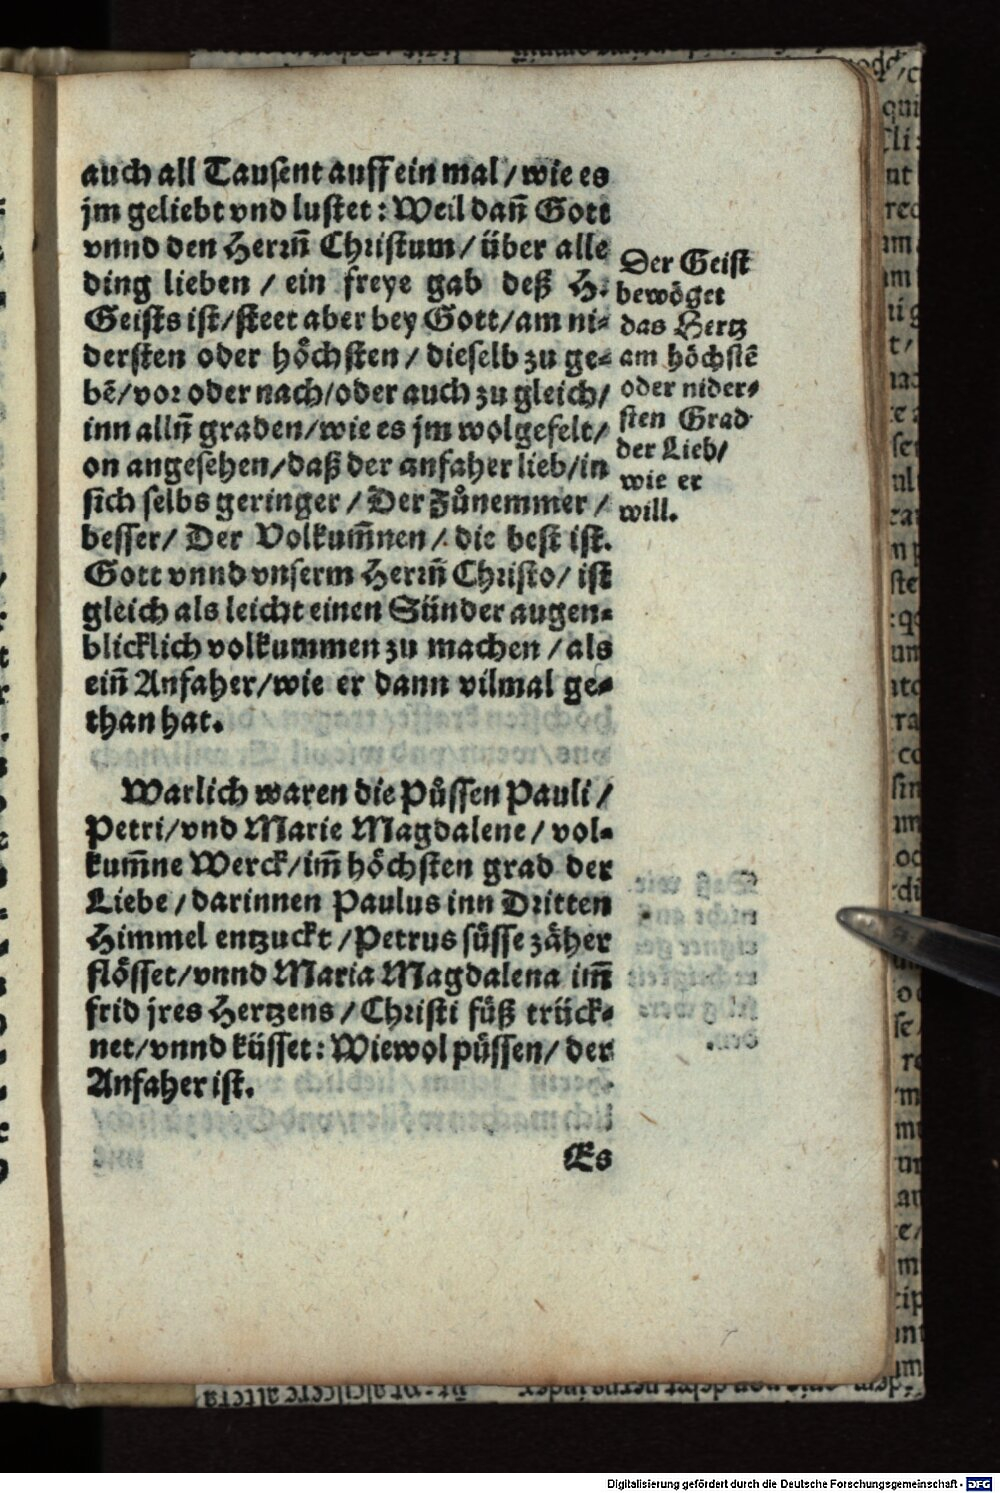 auch all Tausent auff ein mal / wie es
jm geliebt vnd lustet : Weil dañ Gott
vnnd den Herrñ Christum / über alle
ding lieben / ein freye gab deß H.
Geists ist / steet aber bey Gott / am ni-
dersten oder höchsten / dieselb zu ge-
bẽ / vor oder nach / oder auch zu gleich /
inn allñ graden / wie es jm wolgefelt /
on angesehen / daß der anfaher lieb / in
sich selbs geringer / Der Fůnemmer /
besser / Der Volkum̃nen / die best ist.
Gott vnnd vnserm Herrñ Christo / ist
gleich als leicht einen Sünder augen-
blicklich volkummen zu machen / als
eiñ Anfaher / wie er dann vilmal ge-
than hat.
Der Geist
bewöget
das Hertz
am höchstẽ
oder nider-
sten Grad
der Lieb /
wie er
will.
Warlich waren die Půssen Pauli /
Petri / vnd Marie Magdalene / vol-
kum̃ne Werck / im̃ höchsten grad der
Liebe / darinnen Paulus inn Dritten
Himmel entzuckt / Petrus süsse zäher
flösset / vnnd Maria Magdalena im̃
frid jres Hertzens / Christi fůß trück-
net / vnnd küsset : Wiewol půssen / der
Anfaher ist.
Es
Digitalisierung gefördert durch die Deutsche Forschungsgemeinschaft - DFG